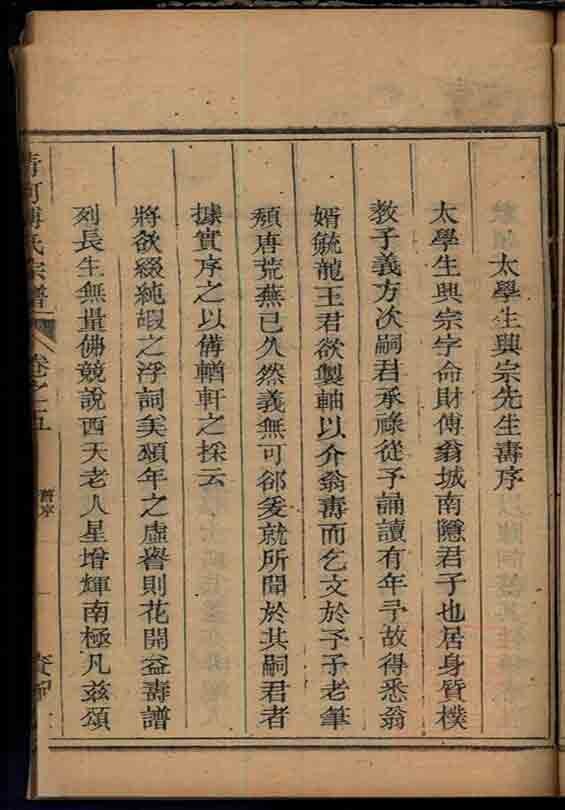 太學生興宗先生壽序
太學生興宗字命財傅翁城南隱君子也居身質樸
教子義方次嗣君承祿從予誦讀有年予故得悉翁
婿毓龍王君欲製軸以介翁壽而乞文於予予老筆
頹唐荒蕪已久然義無可郤爰就所聞於其嗣君者
據實序之以備輶軒之採云
將欲綴純嘏之浮詞美頌年之虛譽則花開益壽譜
列長生無量佛競說西天老人星增輝南極凡茲頌
清河傅氏宗譜 卷之五 壽序 一